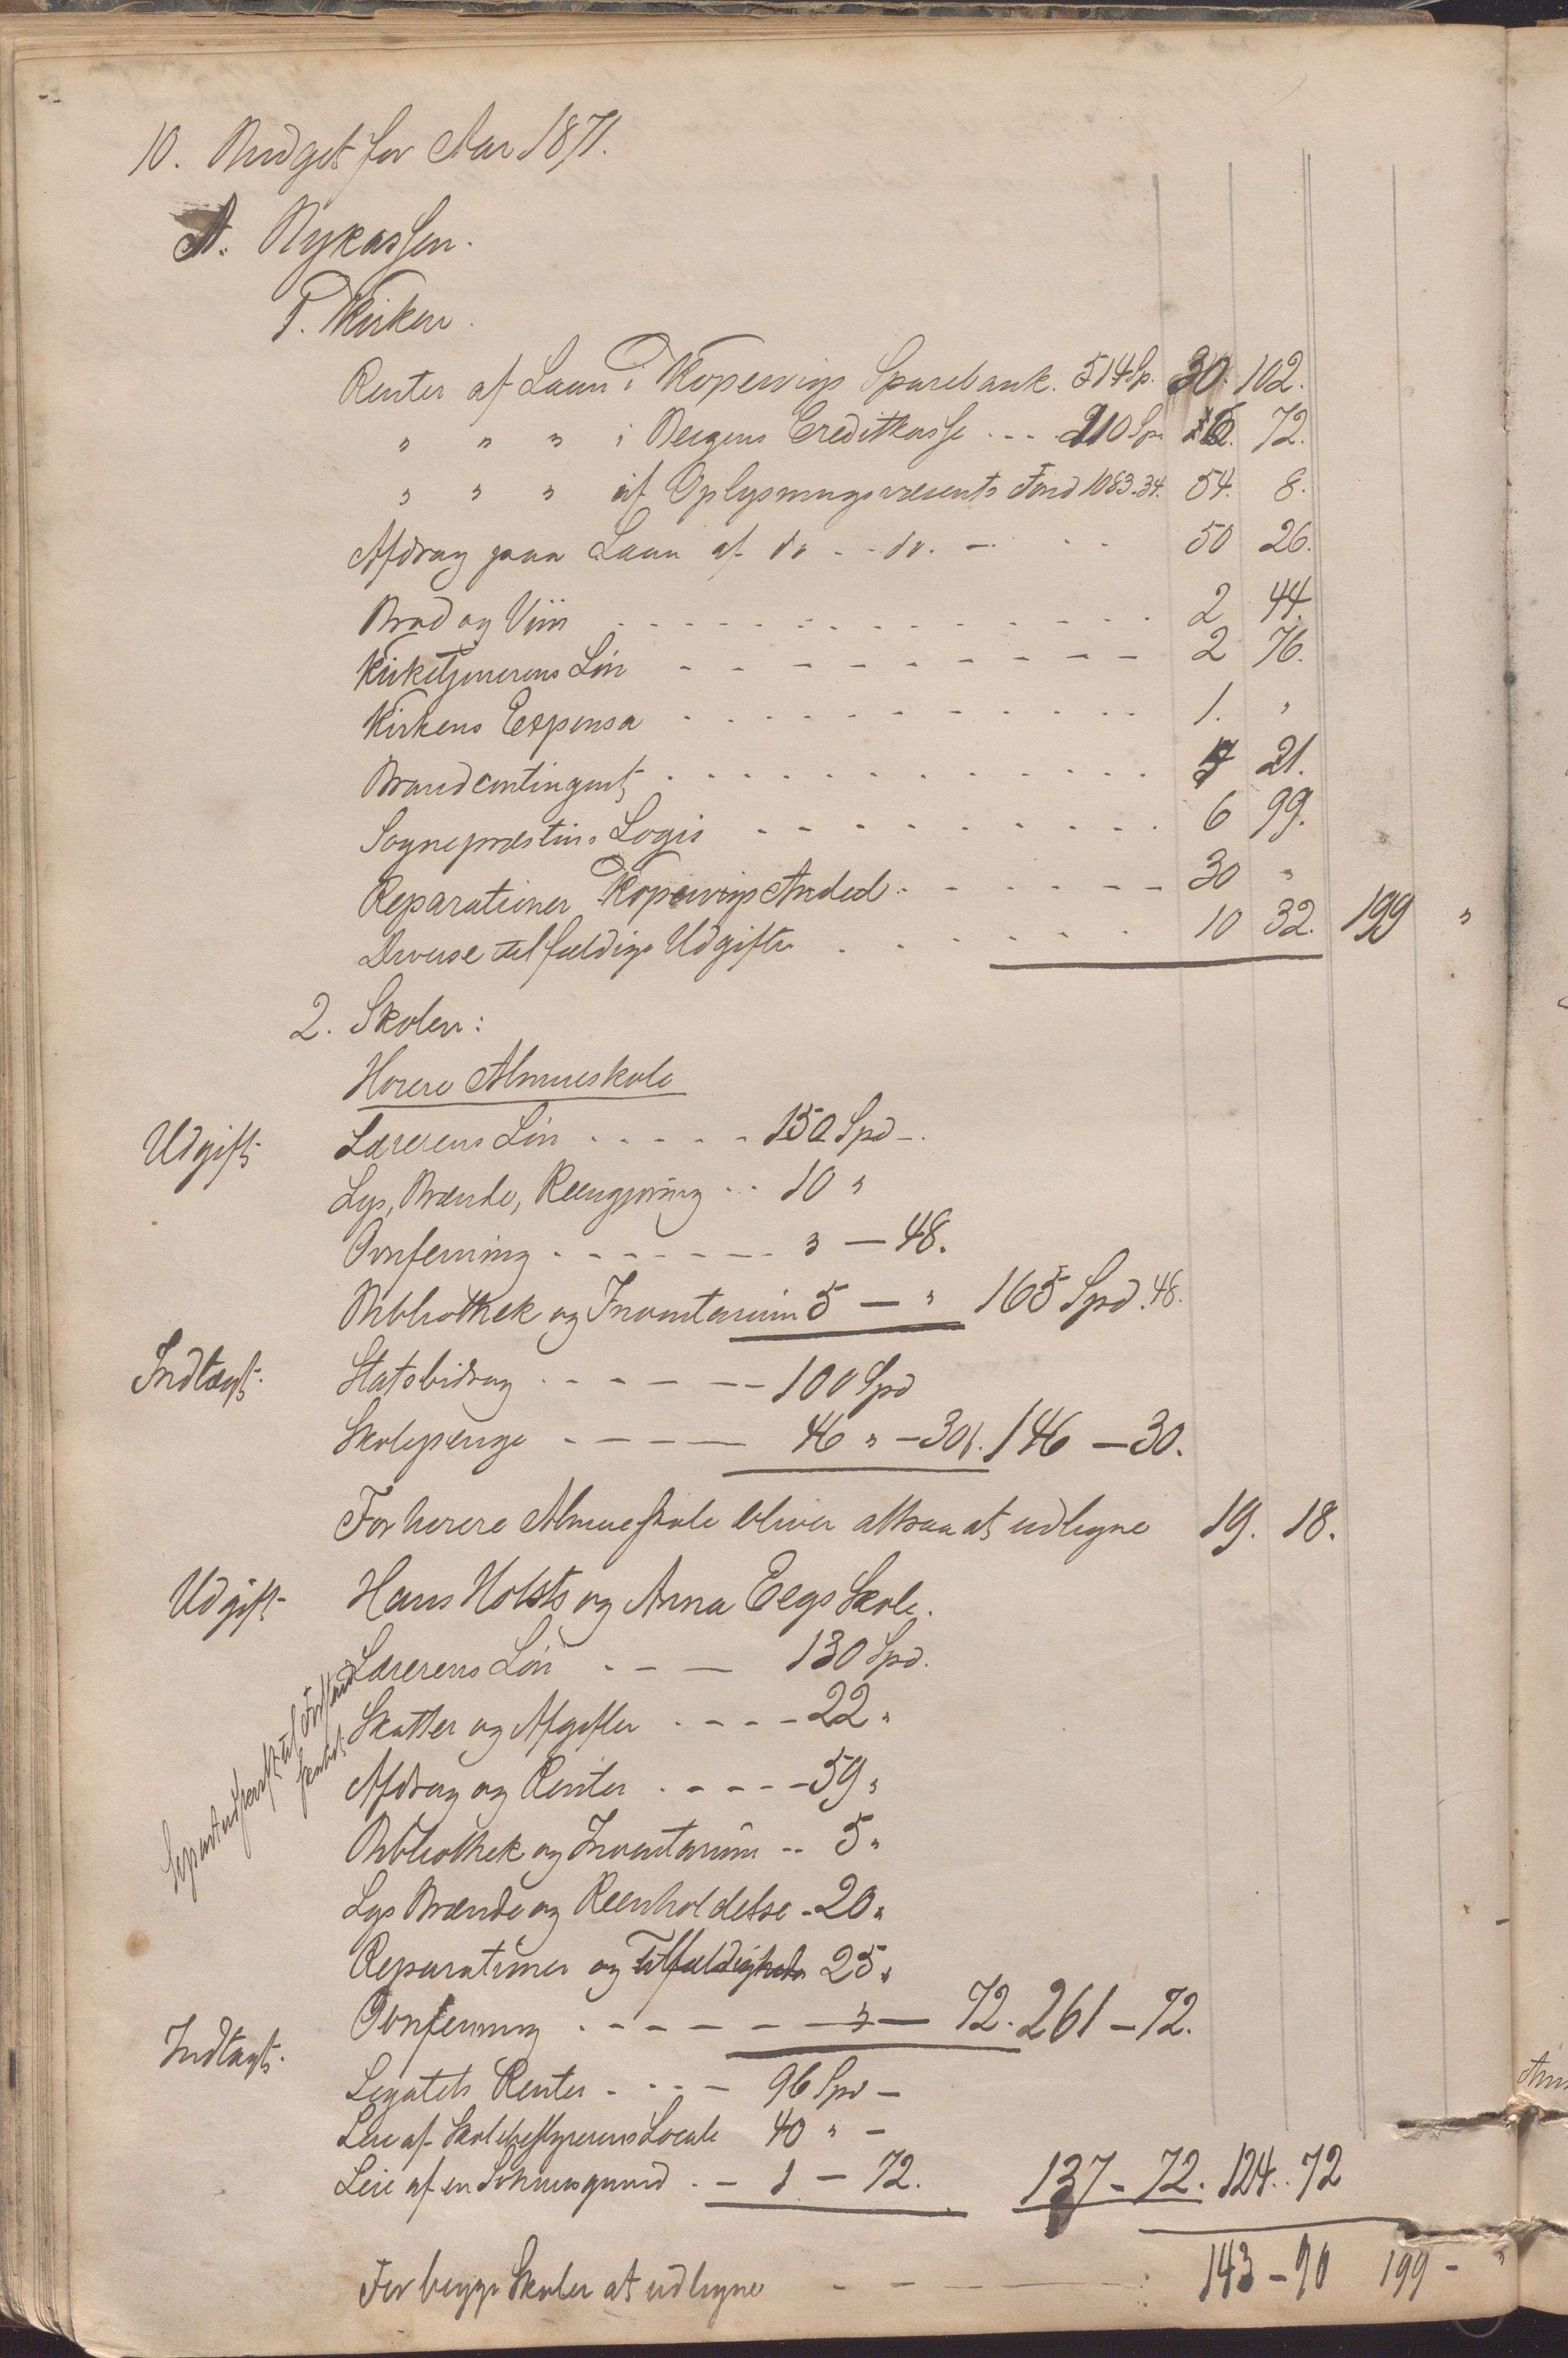 10. Budget for Aar 1871.
A. Bykassen.
1. Kirken.
Renter af Laan i Kopervigs Sparebank. 514 Sp. 30. 102.
" " " i Bergens Creditkasse - - - 210 Sp. 12. 72.
" " " af Oplysningsvæsents Fond 1083.34. 54. 8.
Afdrag paa Laan af do - - do. - - - 50 26.
Brød og Viin - - - - - - 2 44.
Kirketjenerens Løn - - - - - - 2 76.
Kirkens Expensa - - - - - - 1. "
Brandcontingent - - - - - - 21.
Sognepræstens Logis - - - - - - 6 99.
Reparationer Kopervigs Andeel - - - - - - 30 "
Diverse tilfældige Udgifter - - - - - - 10 32. 199 "
2. Skolen:
Høiere Almueskole
Udgift Lærerens Løn - - - - - 150 Spd -.
Lys, Brænde, Reengjøring - - 10 "
Ovnfeining - - - - - - " - 48.
Bibliothek og Inventarium 5 - " 165 Spd. 48.
Indtægt. Statsbidrag - - - - - 100 Spd
Skolepenge - - - - 46 " - 30. 146 - 30.
For høiere Almueskole bliver altsaa at udligne 19. 18.
Udgift Hans Holsts og Anna Eegs Skole.
Lærerens Løn - - - 130 Spd.
Skatter og Afgifter - - - - 22 "
Afdrag og Renter - - - - 59 "
Bibliothek og Inventarium - - 5 "
Lys Brænde og Reenholdelse - 20 "
Reparationer og Tilfældigheder 25 "
Ovnfeining - - - - - " - 72. 261 - 72.
Indtægt. Legatets Renter - - - - 96 Spd -
Leie af Skolebestyrerens Locale 40 " -
Leie af en - 1 - 72. 137 - 72. 124. 72
For begge Skoler at udligne - - - - 143 - 90 199 - "